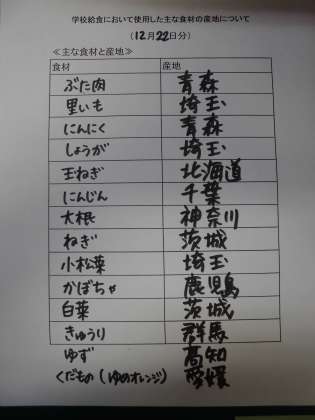 学校給食において使用した主な食材の産地について
(12月22日分)
≪主な食材と産地≫
食材 産地
ぶた肉 青森
里いも 埼玉
にんにく 青森
しょうが 埼玉
玉ねぎ 北海道
にんじん 千葉
大根 神奈川
ねぎ 茨城
小松菜 埼玉
かぼちゃ 鹿児島
白菜 茨城
きゅうり 群馬
ゆず 高知
くだもの( オレンジ) 愛媛